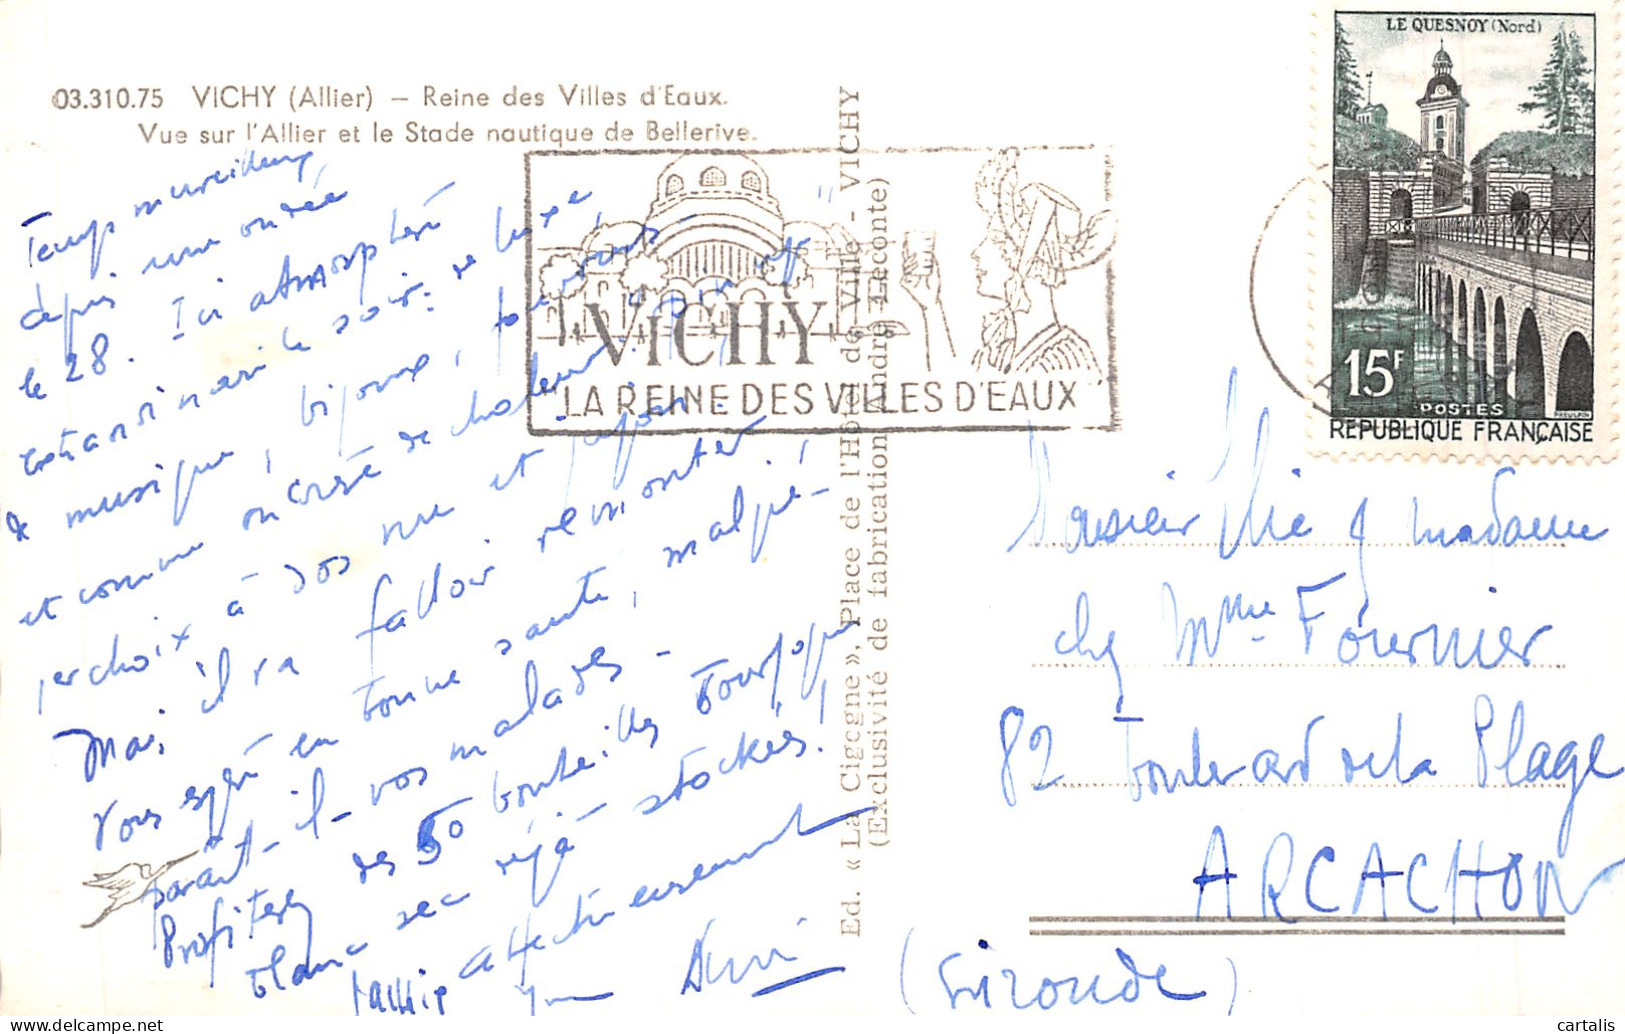 03.310.75 VICHY (Allier) – Reine des Villes d'Eaux.
Vue sur l'Allier et le Stade nautique de Bellerive.
Temps merveilleux
depuis une ondée
le 28. Ici atmosphère
extraordinaire le soir: de luxe
de musique, bijoux, fourrures
et comme on crève de chaleur
à dos nu et jupon
Mais il va falloir remonter
Vous espère en bonne santé, malgré
paraît-il vos malades –
Profitez des 50 bouteilles
blanc sec déjà stockées!
affectueusement
Ed. « La Cigogne », Place de l'Hôtel de Ville - VICHY
(Exclusivité de fabrication André Leconte)
VICHY
LA REINE DES VILLES D'EAUX
LE QUESNOY (Nord)
15F
POSTES
PHEULPIN
REPUBLIQUE FRANÇAISE
Monsieur & madame
chez Mme Fournier
82 Boulevard de la Plage
ARCACHON
(Gironde)
cartalis